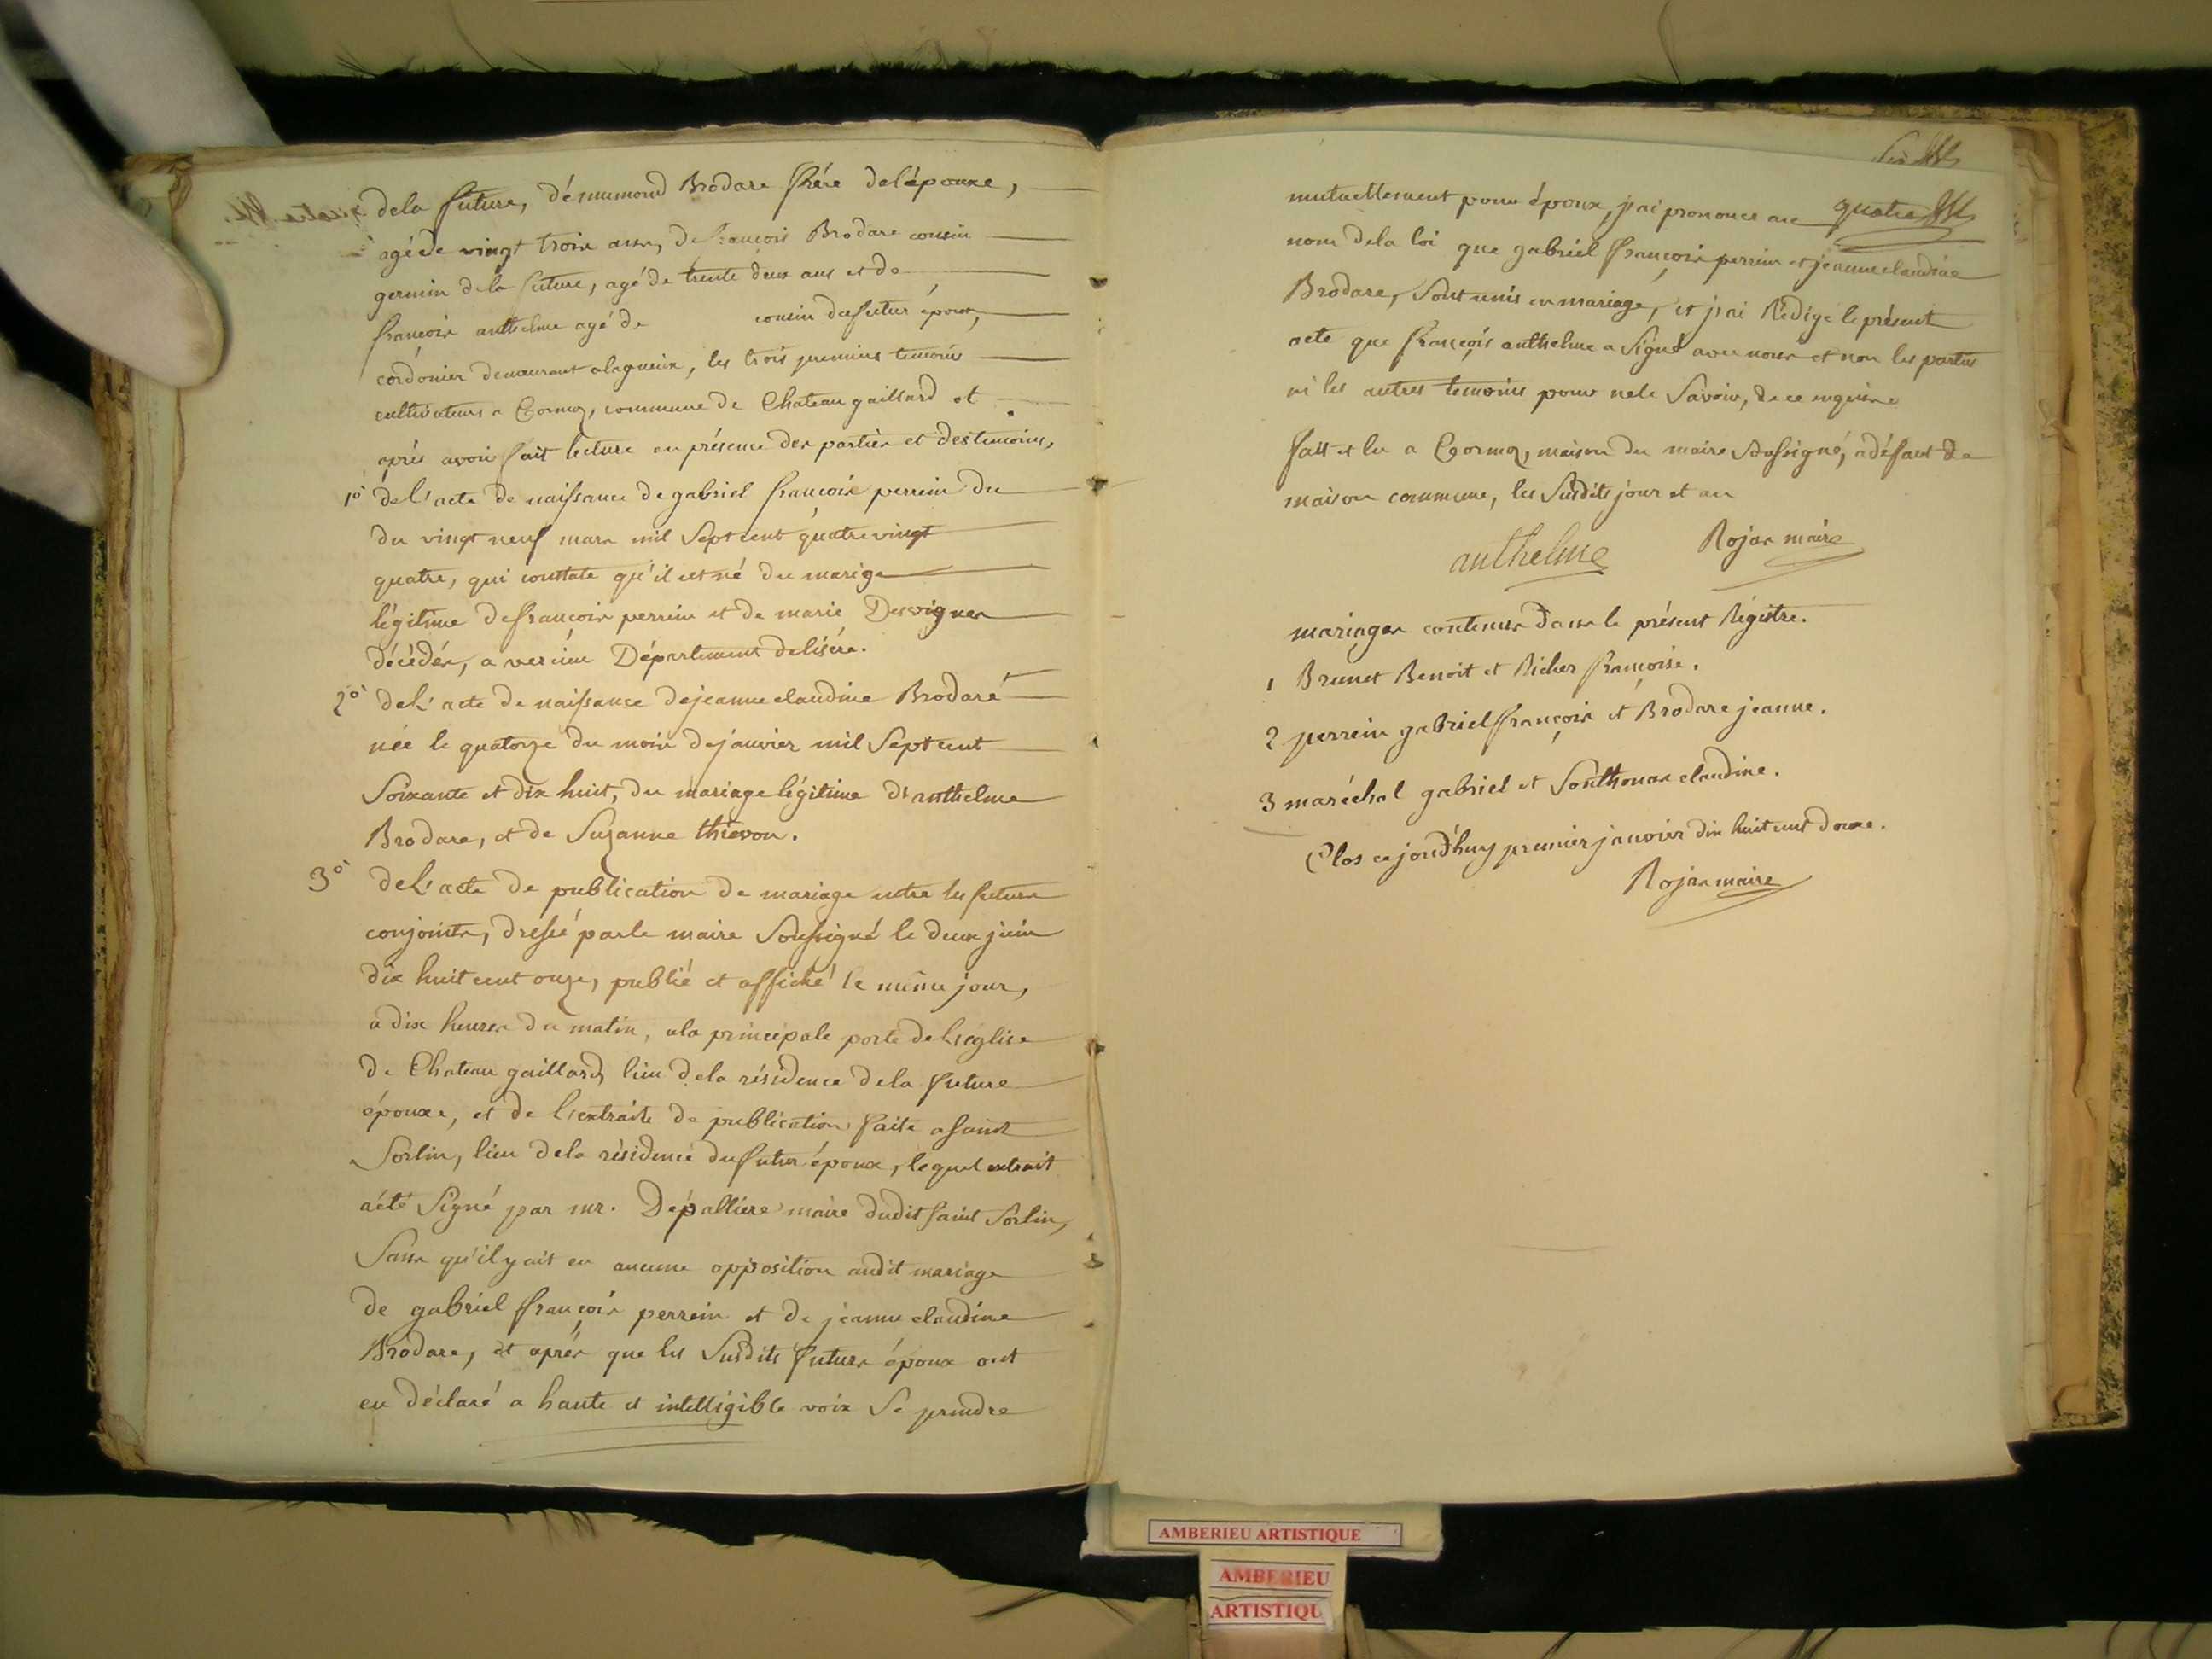 dela future, d'émumond Brodare frére del'épouxe,
agé de vingt trois ans, de francois Brodare cousin
germin dela future, agé de trente deux ans et de
françois anthelme agé de cousin du futur époux,
cordonier demeurant a lagnieu, les trois premiers temoins
cultivateurs a Cormoz, commune de Chateau gaillard et
aprés avoir fait lecture en présence des parties et des temoins,
1° del'acte de naissance de gabriel françois perrin du
du vingt neuf mars mil Sept cent quatre vingt
quatre, qui constate qu'il est né du marige
légitime de françois perrin et de marie Desvignes
décédés, a Département delisére.
2° del'acte de naissance de jeanne claudine Brodare
née le quatorze du mois de janvier mil Sept cent
Soixante et dix huit, du mariage légitime d'anthelme
Brodare, et de Suzanne thievon.
3° del'acte de publication de mariage entre les futurs
conjoints, dressé par le maire Soussigné le deux juin
dix huit cent onze, publié et affiché le même jour,
a dix heures du matin, a la principale porte de l'église
de Chateau gaillard, lieu dela résidence dela future
épouxe, et de l'extraite de publication faite a Saint
Sorlin, lieu dela résidence du futur époux, lequel extrait
a été Signé par mr. Dépalliere maire dudit Saint Sorlin,
Sans qu'il y ait eu aucune opposition audit mariage
de gabriel françois perrin et de jeanne claudine
Brodare, et aprés que les Susdits futurs époux ont
eu déclaré a haute et intelligible voix Se prendre
quatre
mutuellement pour époux, j'ai prononcé au
nom dela loi que gabriel françois perrin et jeanne claudine
Brodare, Sont unis en mariage, et j'ai Rédigé le présent
acte que françois anthelme a Signé avec nous et non les parties
ni les autres temoins pour ne le Savoir, de ce enquis
fait et lu a Cormoz, maison du maire Soussigné, a défaut de
maison commune, les Susdits jour et an
anthelme Rojas maire
mariages contenus dans le présent Régistre.
1 Brunet Benoit et Richer françoise.
2 perrin gabriel françois et Brodare jeanne.
3 maréchal gabriel et Sonthonas claudine.
Clos ce jourd'huy premier janvier dix huit cent douze.
Rojas maire
AMBERIEU ARTISTIQUE
AMBERIEU
ARTISTIQU